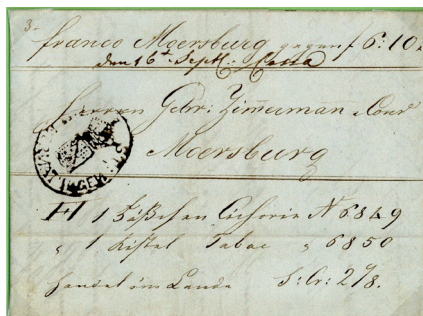 3.
franco Moersburg gegen f 6:10x
den 16t Septb: Cassa
Herren Gebr: Zimerman
Moersburg
H 1 Fäßchen Cichorie N 6849
„ 1 Kistel Tabac „ 6850
Handel im Lande S: Cr: 278.